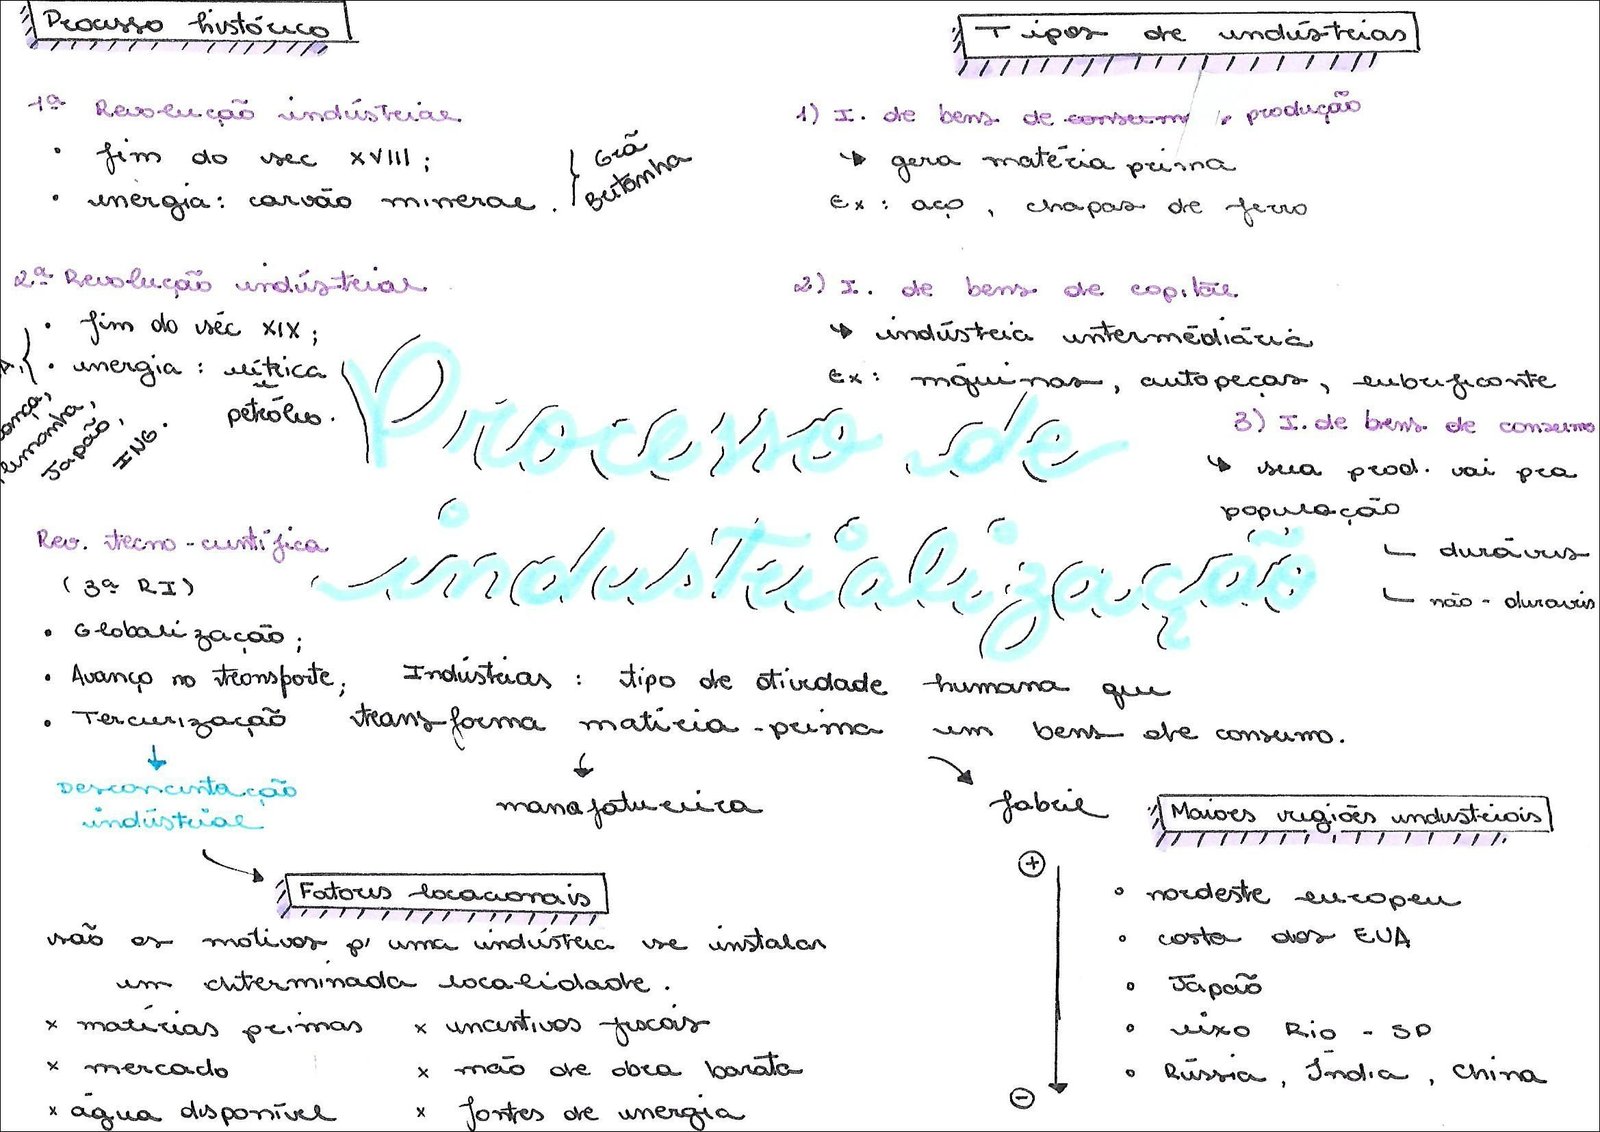 Processo histórico
1ª Revolução indústrial
• fim do sec XVIII;
• energia: carvão mineral.
Grã
Bretanha
2ª Revolução indústrial
• fim do séc XIX;
• energia: elétrica
e
petróleo.
Alemanha,
Japão,
ING.
Rev. tecno-científica
(3ª RI)
• Globalização;
• Avanço no transporte;
• Terceirização
Desconcentação
indústrial
Processo de
industrialização
Tipos de indústrias
1) I. de bens de consumo produção
gera matéria prima
Ex: aço, chapas de ferro
2) I. de bens de capital
indústria intermédiária
Ex: máquinas, autopeças, lubrificante
3) I. de bens de consumo
sua prod. vai pra
população
duráveis
não-duraveis
Indústrias: tipo de atividade humana que
transforma matéria-prima em bens de consumo.
manafatureira
fabril
Fatores locacionais
são os motivos p/ uma indústria se instalar
em determinada localidade.
x matérias primas
x mercado
x água disponível
x incentivos fiscais
x mão de obra barata
x fontes de energia
Maiores regiões industriais
+
−
• nordeste europeu
• costa dos EUA
• Japão
• eixo Rio - SP
• Rússia, Índia, China